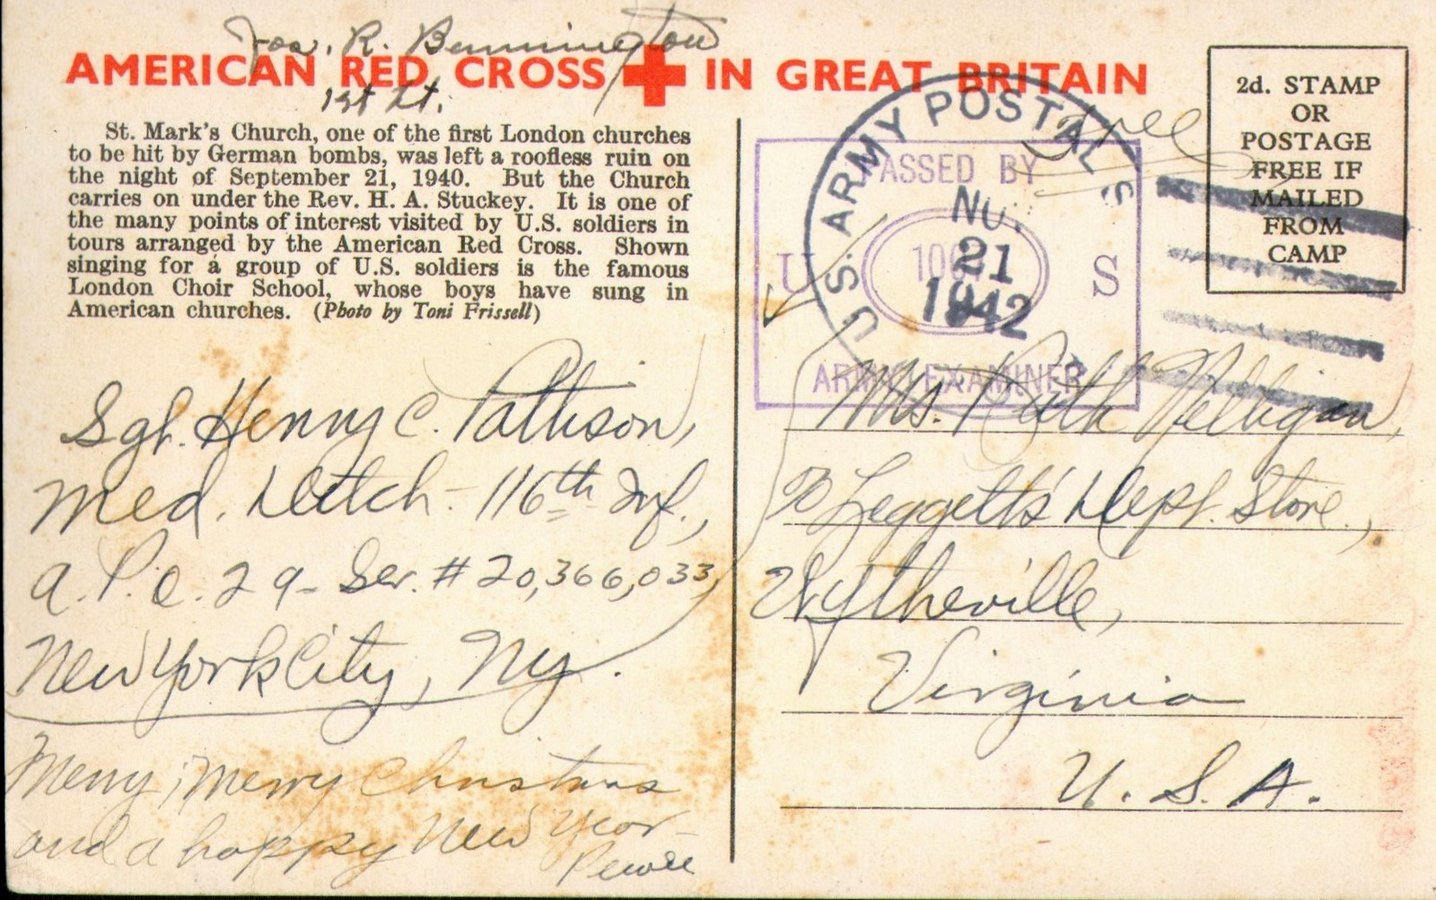 Jos. R. Bennington
AMERICAN RED CROSS IN GREAT BRITAIN
1st Lt.
St. Mark's Church, one of the first London churches
to be hit by German bombs, was left a roofless ruin on
the night of September 21, 1940. But the Church
carries on under the Rev. H. A. Stuckey. It is one of
the many points of interest visited by U.S. soldiers in
tours arranged by the American Red Cross. Shown
singing for a group of U.S. soldiers is the famous
London Choir School, whose boys have sung in
American churches. (Photo by Toni Frissell)
Sgt. Henry C. Pattison,
Med. Detch - 116th Inf.,
A.P.O. 29 - Ser. # 20,366,033
New York City, Ny.
Merry, Merry Christmas
and a happy New Year -
Peewee
U.S. ARMY POSTAL S
21
1942
PASSED BY
U S
ARMY EXAMINER
Free
2d. STAMP
OR
POSTAGE
FREE IF
MAILED
FROM
CAMP
Mrs. Ruth
c/o Leggett's Dept. Store.,
Wytheville,
Virginia
U. S. A.